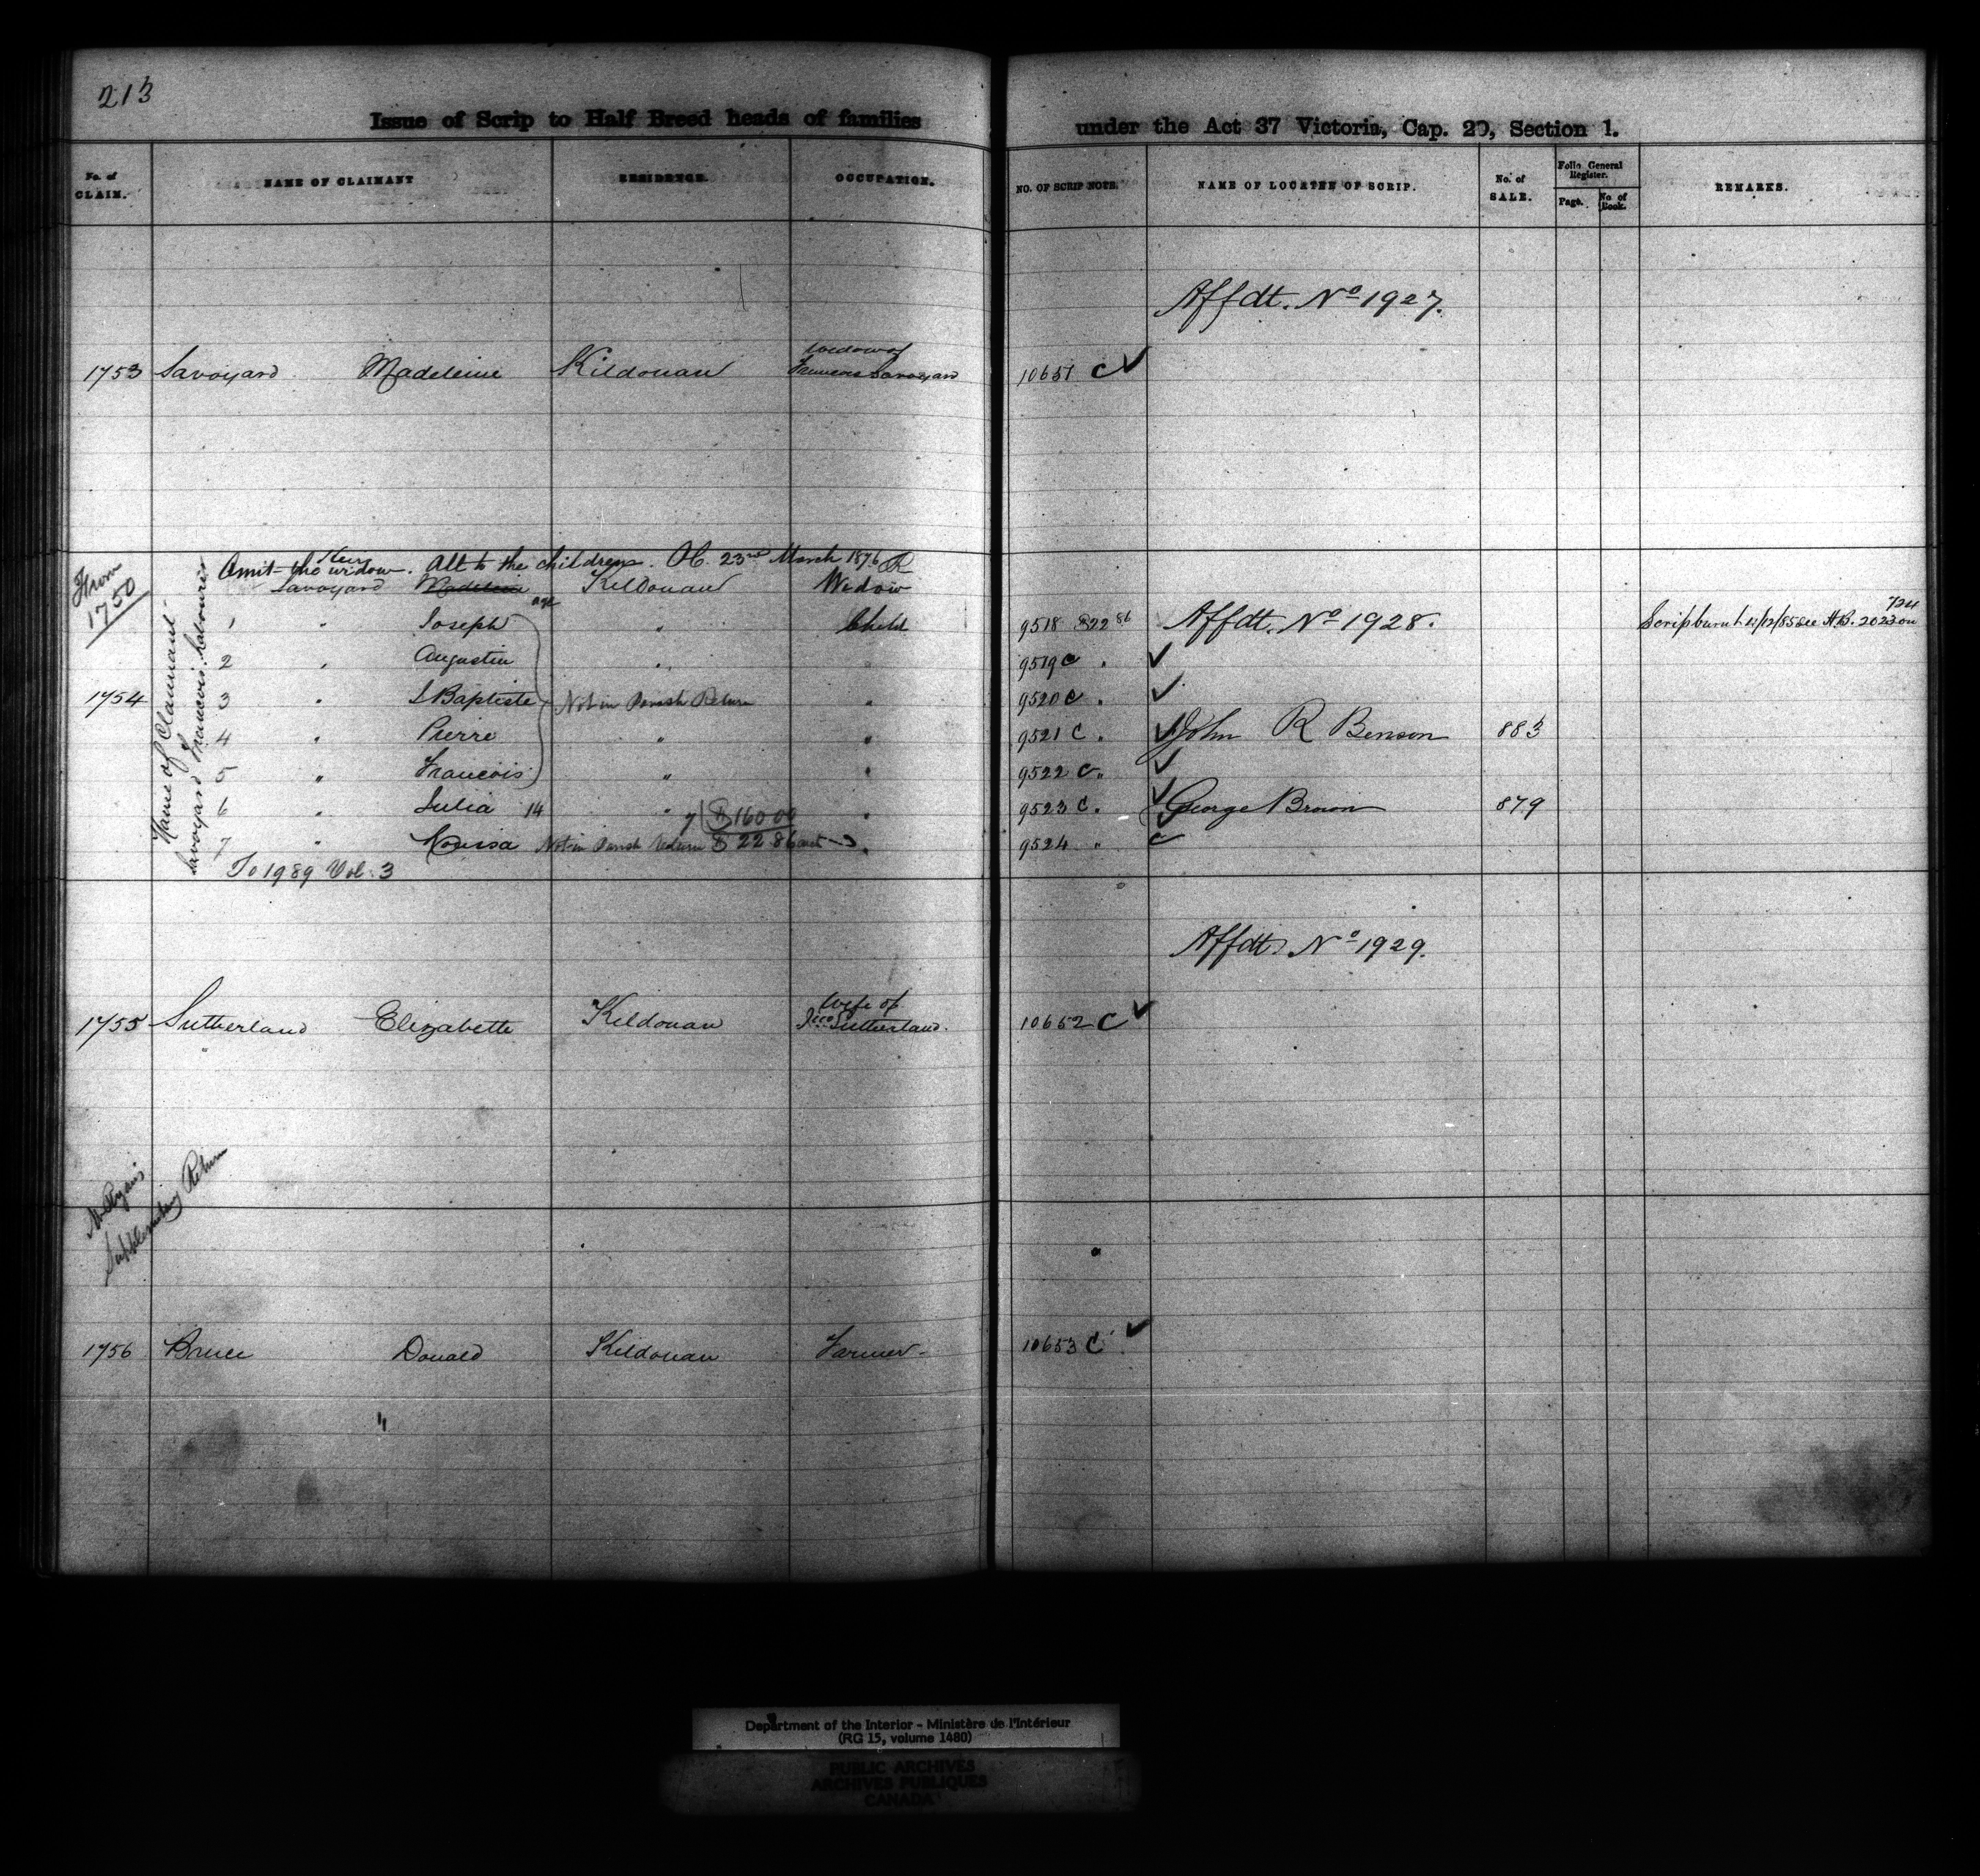 213
Issue of Scrip to Half Breed heads of families under the Act 37 Victoria, Cap. 20, Section 1.
No. of CLAIM. NAME OF CLAIMANT RESIDENCE. OCCUPATION. NO. OF SCRIP NOTE. NAME OF LOCATEE OF SCRIP. No. of SALE. Folio General Register. Page. No. of Book. REMARKS.
Affdt. No 1927.
widow of
1753 Savoyard Madeleine Kildonan Francois Savoyard 10651 C ✓
From 1750
Name of Claimant
Savoyard Francois. Labourer
Heirs
Omit the widow. Alt to the children. 23rd March 1876
Savoyard Madelein Kildonan Widow
age
1 " Joseph " Child 9518 $22 86 Affdt. No 1928. Scrip burnt 12/12/85 see H.B. 2023 on 724
2 " Augustin " " 9519 C " ✓
1754 3 " J Baptiste Not in Parish Return " 9520 C " ✓
4 " Pierre " " 9521 C " ✓ John R Benson 883
5 " Francois " " 9522 C " ✓
6 " Julia 14 " 7) $160 00 " 9523 C " ✓ George Brown 879
7 " Not in Parish Return $22 86 " 9524 "
To 1989 Vol. 3
Affdt. No 1929.
wife of
1755 Sutherland Elizabeth Kildonan Jno Sutherland. 10652 C ✓
Mr Ryan's
Supplementary Return
1756 Bruce Donald Kildonan Farmer 10653 C ✓
Department of the Interior - Ministère de l'Intérieur
(RG 15, volume 1480)
PUBLIC ARCHIVES
ARCHIVES PUBLIQUES
CANADA